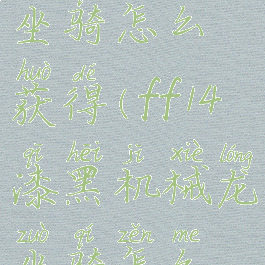 坐骑怎么
huò dé
获得(ff14
qī hēi jī xiè lóng
漆黑机械龙
zuò qí zěn me
坐骑怎么